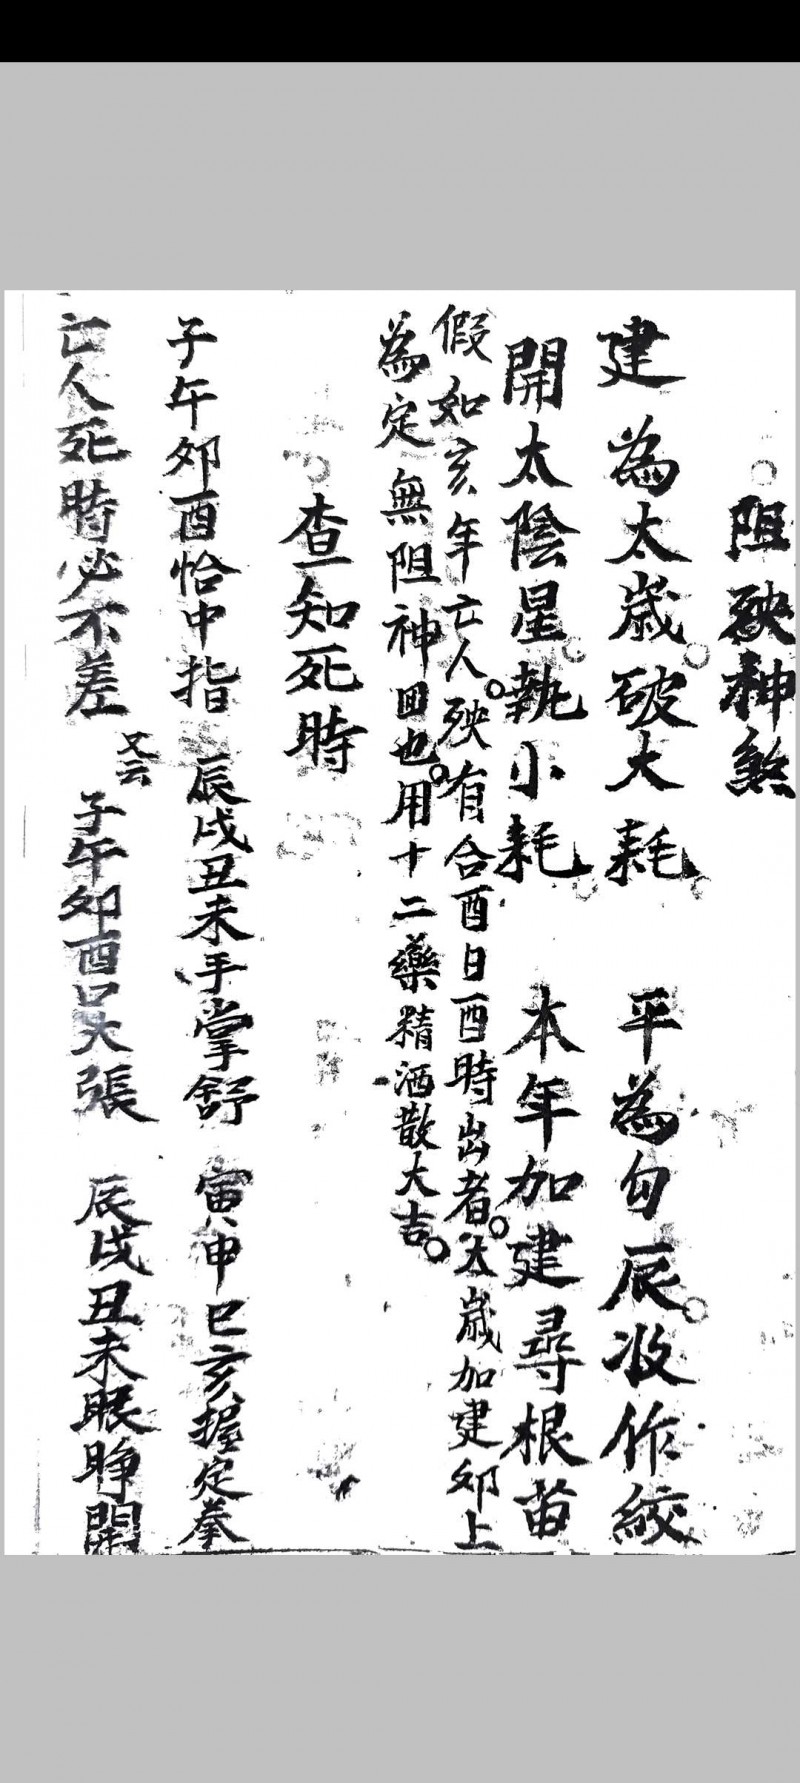 阻殃神煞
建為太歲破大耗　平為勾辰收作絞
開太陰星執小耗　本年加建尋根苗
假如亥年亡人。殃有合酉日酉時出者。太歲加建卯上
為定無阻神回也。用十二藥精洒散大吉。
查知死時
子午卯酉恰中指　辰戌丑未手掌舒　寅申巳亥握定拳
亡人死時必不差　又云　子午卯酉口大張　辰戌丑未眼睁開